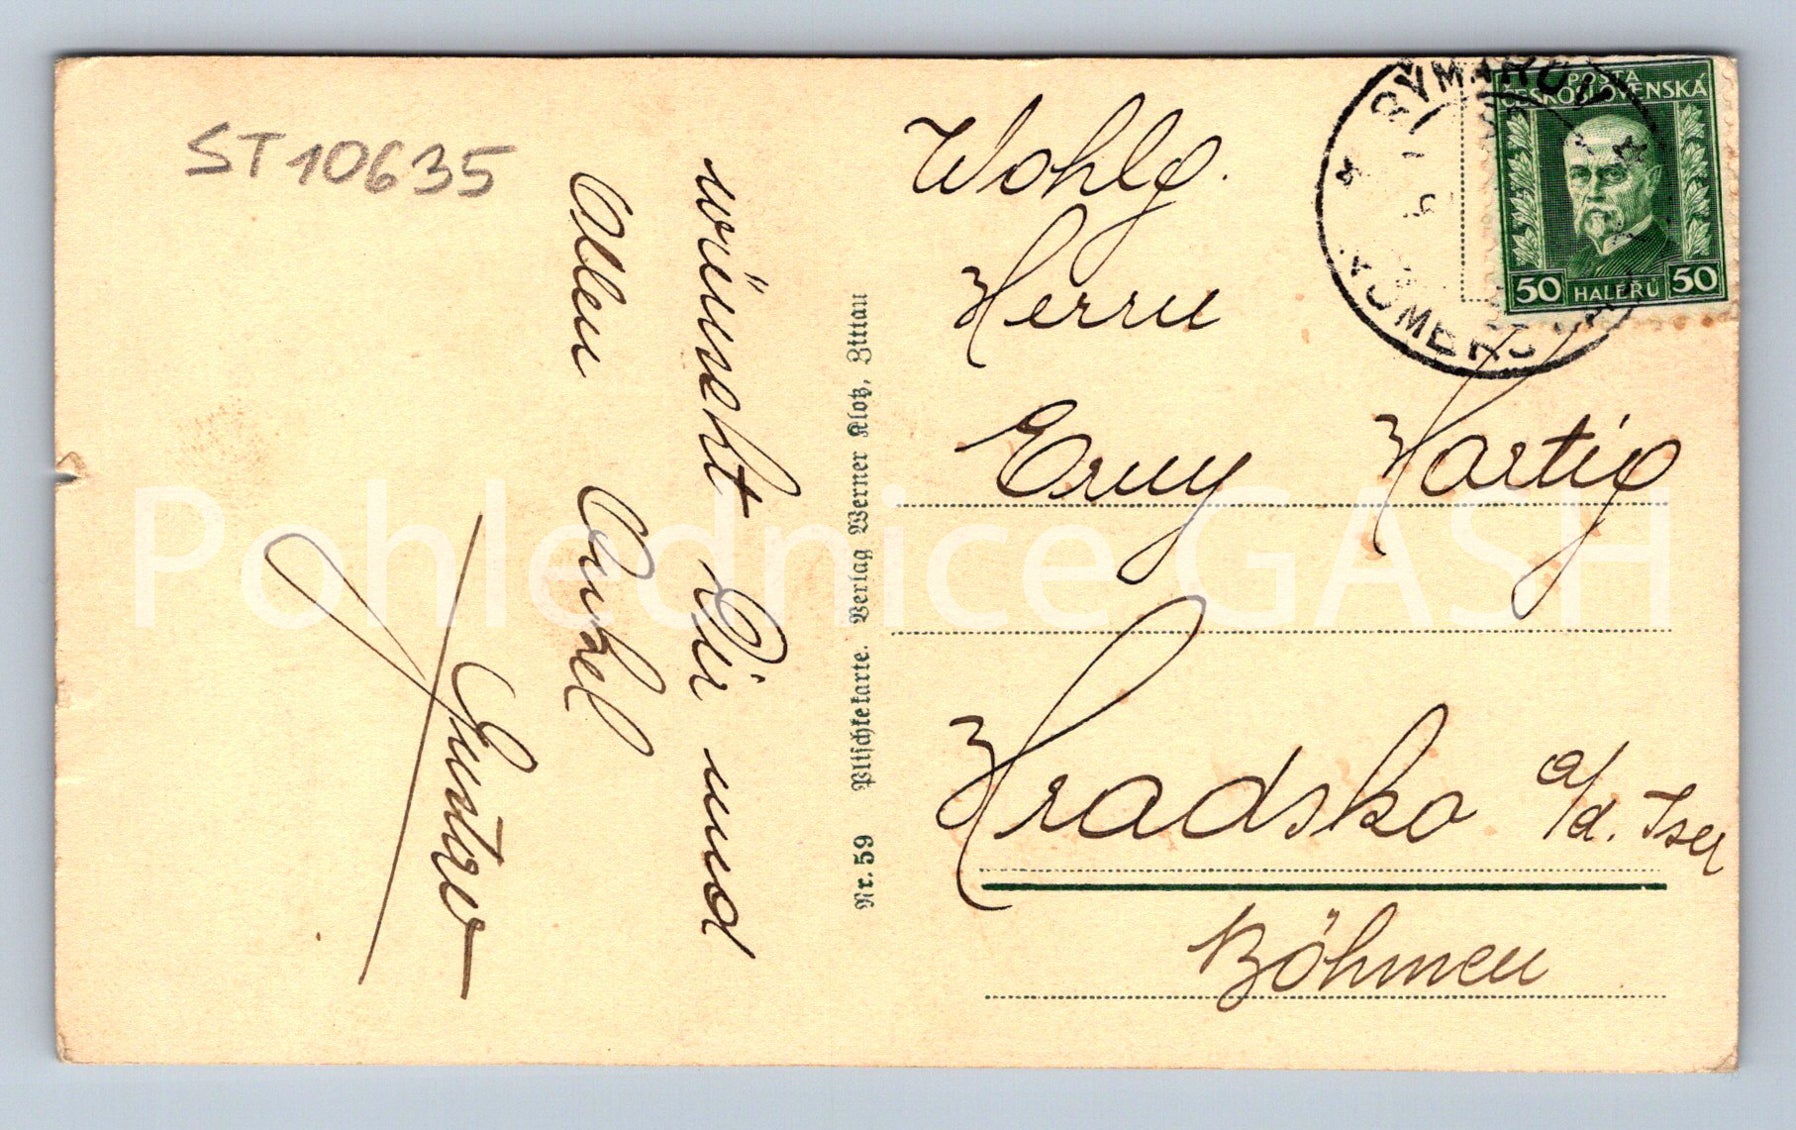 ST10635
wünscht Dir und
Allen Onkel
Gustav
Nr. 59 Plischkekarte. Verlag Werner Klotz, Zittau
Wohlg.
Herrn
Erny Hartig
Hradsko a/d. Iser
Böhmen
RÝMAŘOV
RÖMERSTADT
POŠTA
ČESKOSLOVENSKÁ
50 HALÉŘŮ 50
Pohlednice GASH